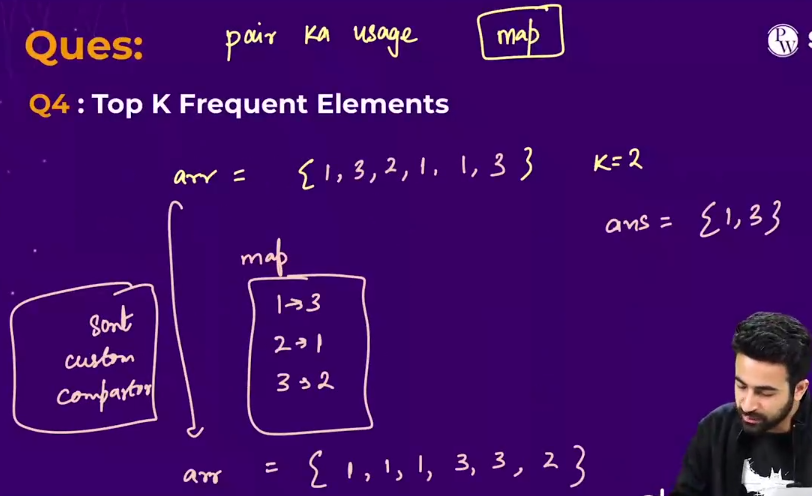 Ques: pair ka usage map
PW S
Q4 : Top K Frequent Elements
arr = {1, 3, 2, 1, 1, 3} K=2
ans = {1, 3}
map
1→3
2→1
3→2
sort
custom
compartor
arr = {1, 1, 1, 3, 3, 2}